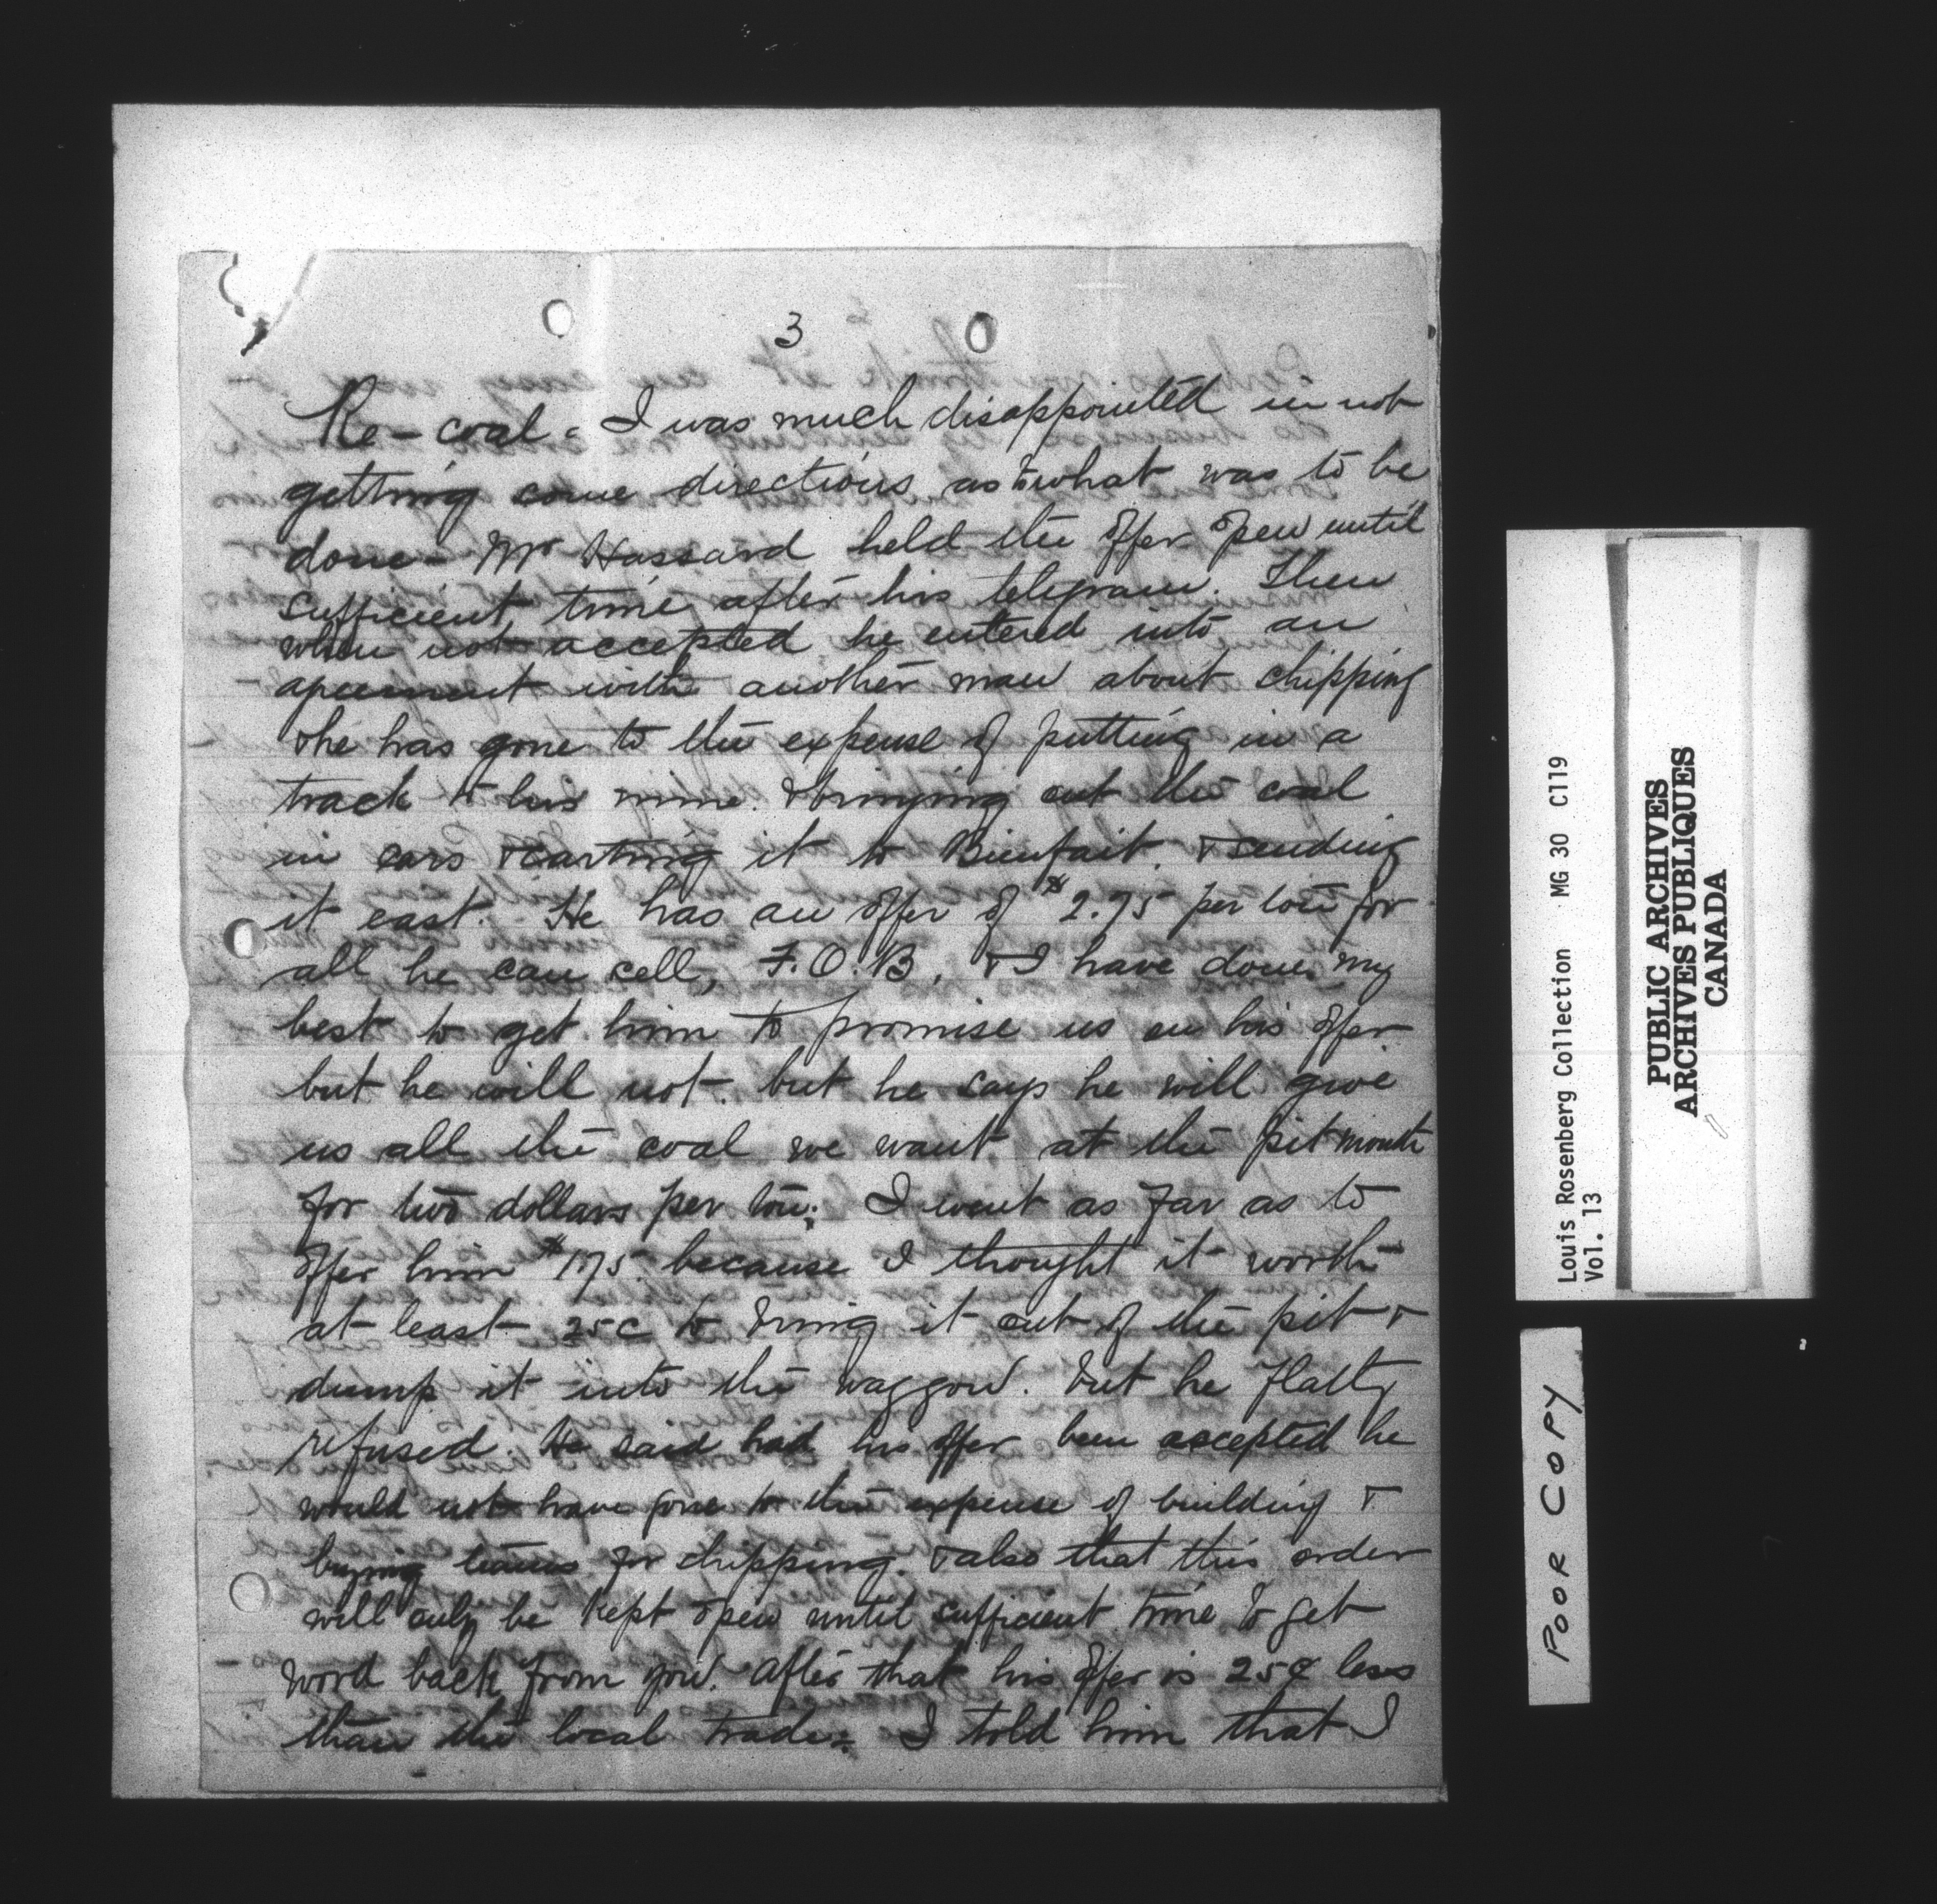 3
Re - coal. I was much disappointed in not
getting some directions as to what was to be
done - Mr Hassard held the offer open until
sufficient time after his telegram. Then
when not accepted he entered into an
agreement with another man about shipping
& he has gone to the expense of putting in a
track to his mine. & bringing out the coal
in cars & carting it to Bienfait. & sending
it east. He has an offer of $2.75 per ton for
all he can sell, F.O.B. & I have done my
best to get him to promise us on his offer
but he will not. but he says he will give
us all the coal we want at the pit mouth
for two dollars per ton; I went as far as to
offer him $175 because I thought it worth
at least 25c to bring it out of the pit &
dump it into the waggon. but he flatly
refused. He said had his offer been accepted he
would not have gone to the expense of building &
buying teams for shipping. & also that this order
will only be kept open until sufficient time to get
word back from you. After that his offer is 25¢ less
than the local trade. I told him that I
Louis Rosenberg Collection MG 30 C119
Vol. 13
PUBLIC ARCHIVES
ARCHIVES PUBLIQUES
CANADA
POOR COPY